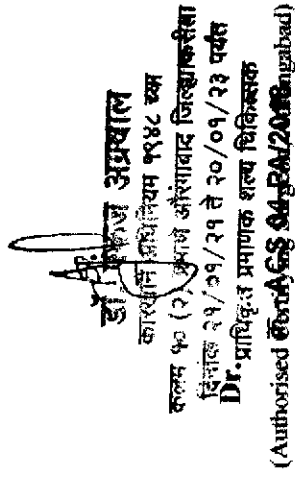 डॉ. अग्रवाल
कारखाने अधिनियम १९४८ च्या
कलम १० (२) प्रमाणे औरंगाबाद जिल्ह्याकरीता
दिनांक २१/०१/२१ ते २०/०१/२३ पर्यंत
Dr. प्राधिकृत प्रमाणक शल्य चिकित्सक
(Authorised